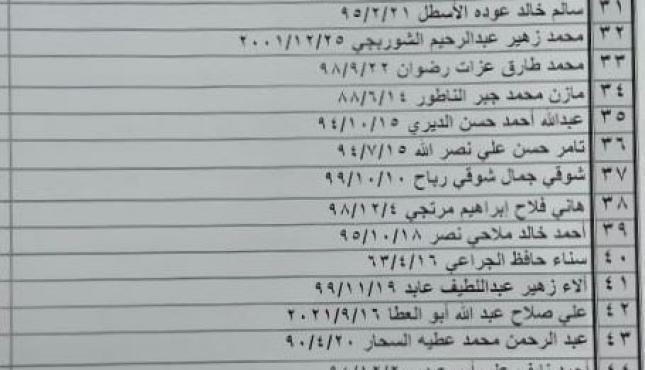 ٣١ سالم خالد عوده الأسطل ٩٥/٢/٢١
٣٢ محمد زهير عبدالرحيم الشوربجي ٢٠٠١/١٢/٢٥
٣٣ محمد طارق عزات رضوان ٩٨/٩/٢٢
٣٤ مازن محمد جبر الناطور ٨٨/٦/١٤
٣٥ عبدالله أحمد حسن الديري ٩٤/١٠/١٥
٣٦ تامر حسن علي نصر الله ٩٤/٧/١٥
٣٧ شوقي جمال شوقي رباح ٩٩/١٠/١٠
٣٨ هاني فلاح إبراهيم مرتجي ٩٨/١٢/٤
٣٩ أحمد خالد ملاحي نصر ٩٥/١٠/١٨
٤٠ سناء حافظ الجراعي ٦٣/٤/١٦
٤١ ألاء زهير عبداللطيف عابد ٩٩/١١/١٩
٤٢ علي صلاح عبد الله أبو العطا ٢٠٢١/٩/١٦
٤٣ عبد الرحمن محمد عطيه السحار ٩٠/٤/٢٠
٤٤